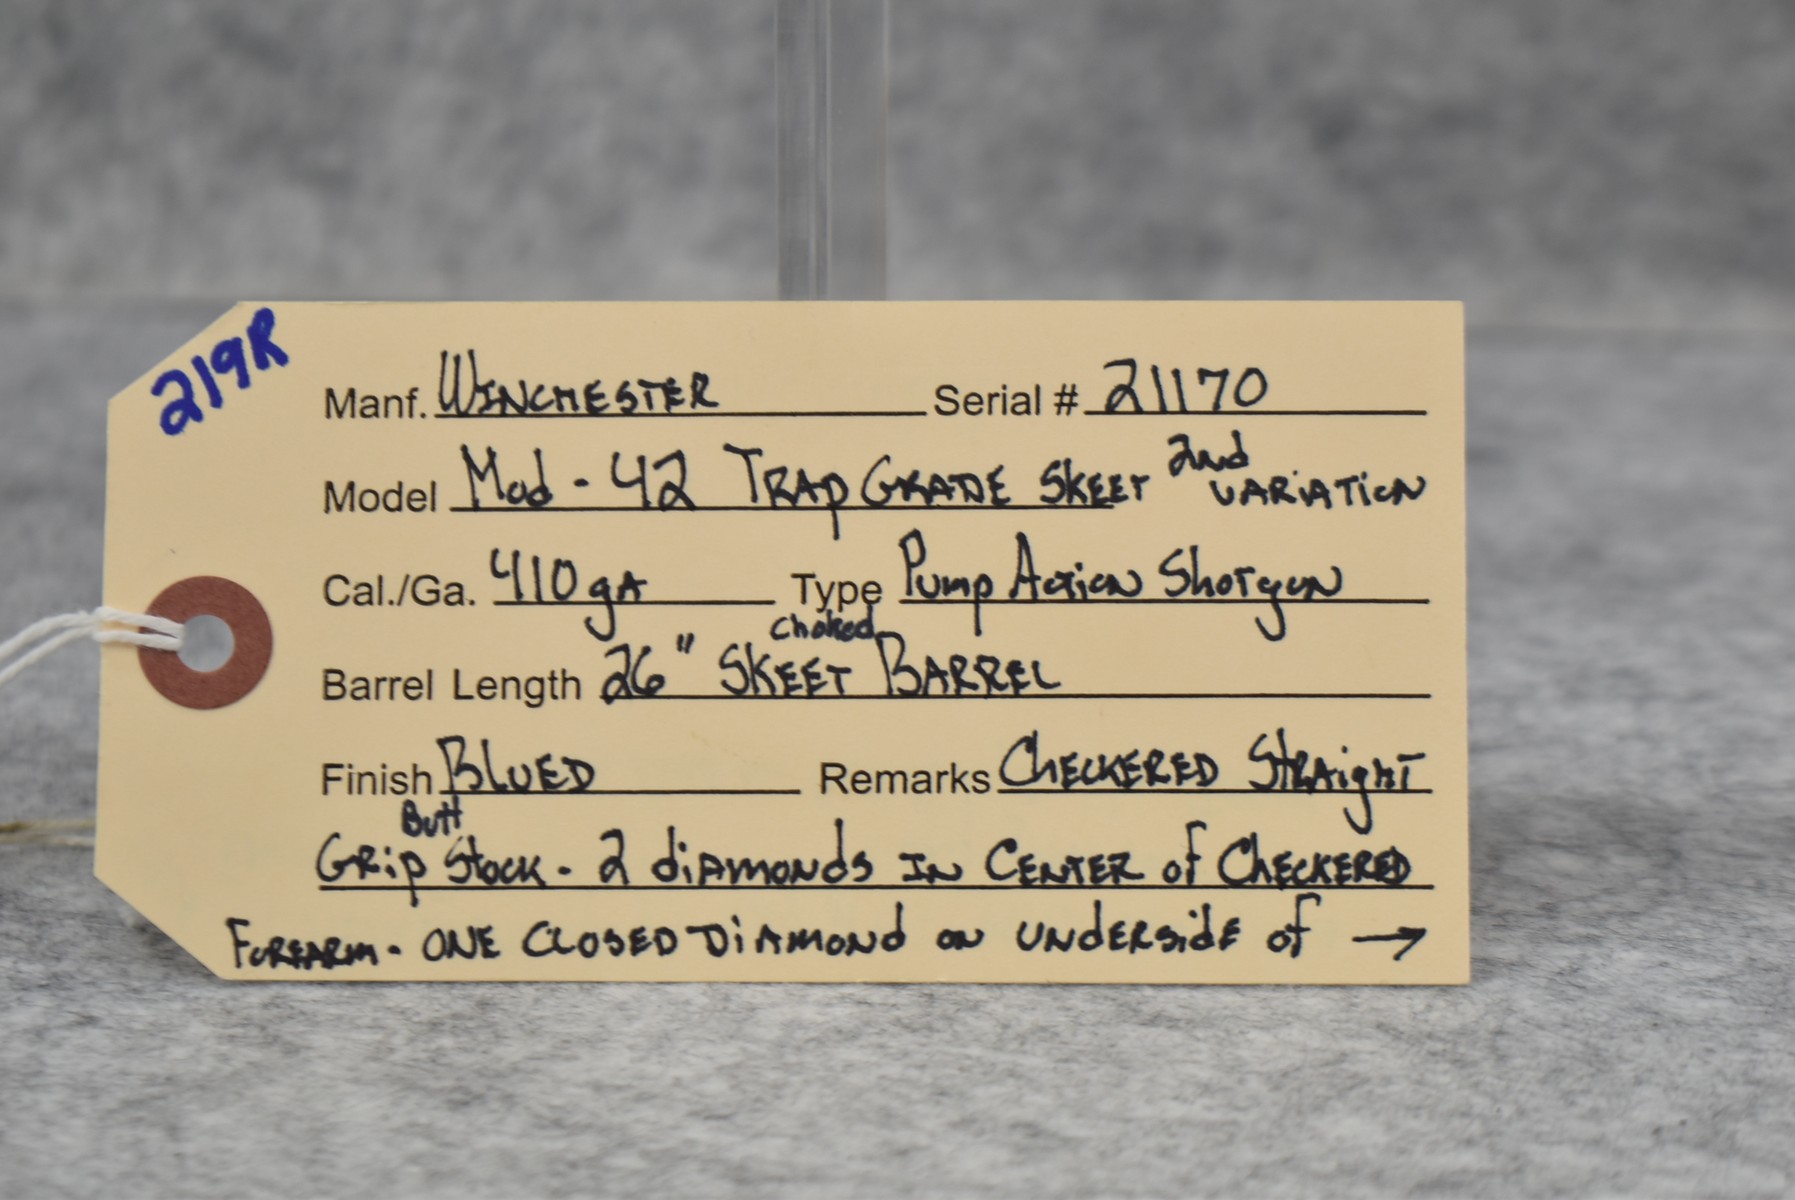 219R
Manf. WINCHESTER Serial # 21170
Model Mod - 42 TRAP GRADE SKEET 2nd VARIATION
Cal./Ga. 410 gA Type Pump Action Shotgun
Barrel Length 26" SKEET choked BARREL
Finish BLUED Remarks CHECKERED STRAIGHT
GRip Butt Stock - 2 diAMONDS IN CENTER of CHECKERED
FOREARM - ONE CLOSED DiAMOND ON UNDERSiDE of →